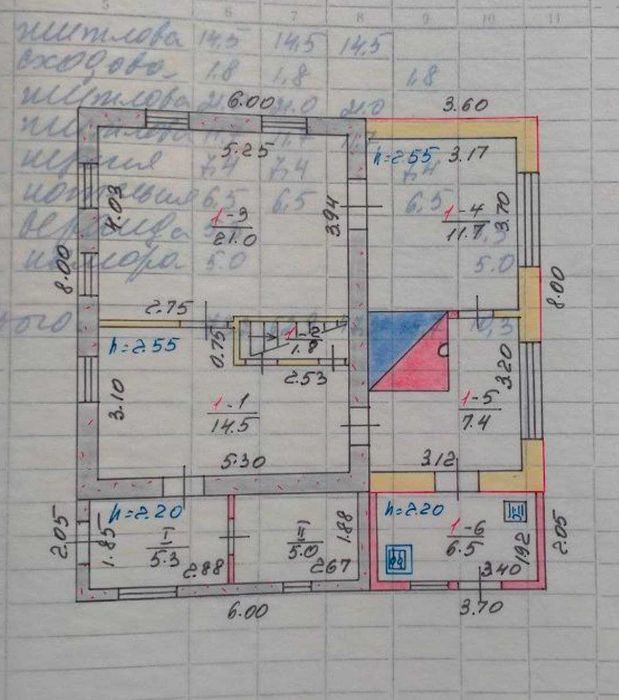 5 6 7 8 9 10 11
житлова 14,5 14,5 14,5
сходова 1,8 1,8 1,8
житлова 21.0 21.0 21.0
житлова 11,7 11,7
кухня 7,4 7,4 7,4
6,5 6,5 6,5
веранда
комора 5.0 5.0
6.00 3.60
5.25 h=2.55 3.17
4.03 1-3 21.0 3.94 1-4 11.7 3.70
8.00 8.00
2.75
h=2.55 0.75 1-2 1.8
2.53
3.20
3.10 1-1 14.5 1-5 7.4
5.30 3.12
h=2.20 h=2.20
2.05 1.85 I 5.3 II 5.0 1.88 1-6 6.5 1.92 2.05
2.88 2.67 3.40
6.00 3.70